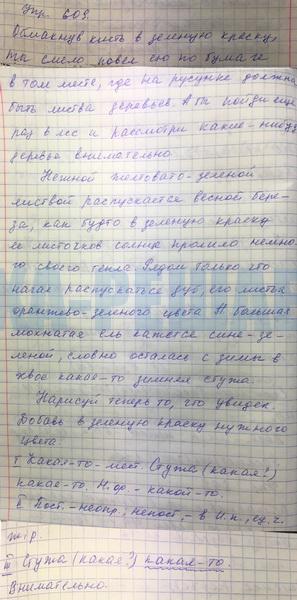 Упр. 609.
Обмакнув кисть в зеленую краску,
ты смело повел ею по бумаге
в том месте, где на рисунке должна
быть листва деревьев. А ты пойди еще
раз в лес и рассмотри какие-нибудь
деревья внимательно.
Нежной желтовато-зеленой
листвой распускается весной бере-
за, как будто в зеленую краску
ее листочков солнце пролило немно-
го своего тепла. Рядом только что
начал распускаться дуб, его листья
оранжево-зеленого цвета. А большая
мохнатая ель кажется сине-зе-
леной, словно осталась с зимы в
хвое какая-то зимняя стужа.
Нарисуй теперь то, что увидел.
Добавь в зеленую краску нужного
цвета.
I Какая-то - мест. Стужа (какая?)
какая-то. Н.ф. - какой-то.
II Пост. - неопр., непост. - в И.п., ед.ч.
ж.р.
III Стужа (какая?) какая-то.
Внимательно.